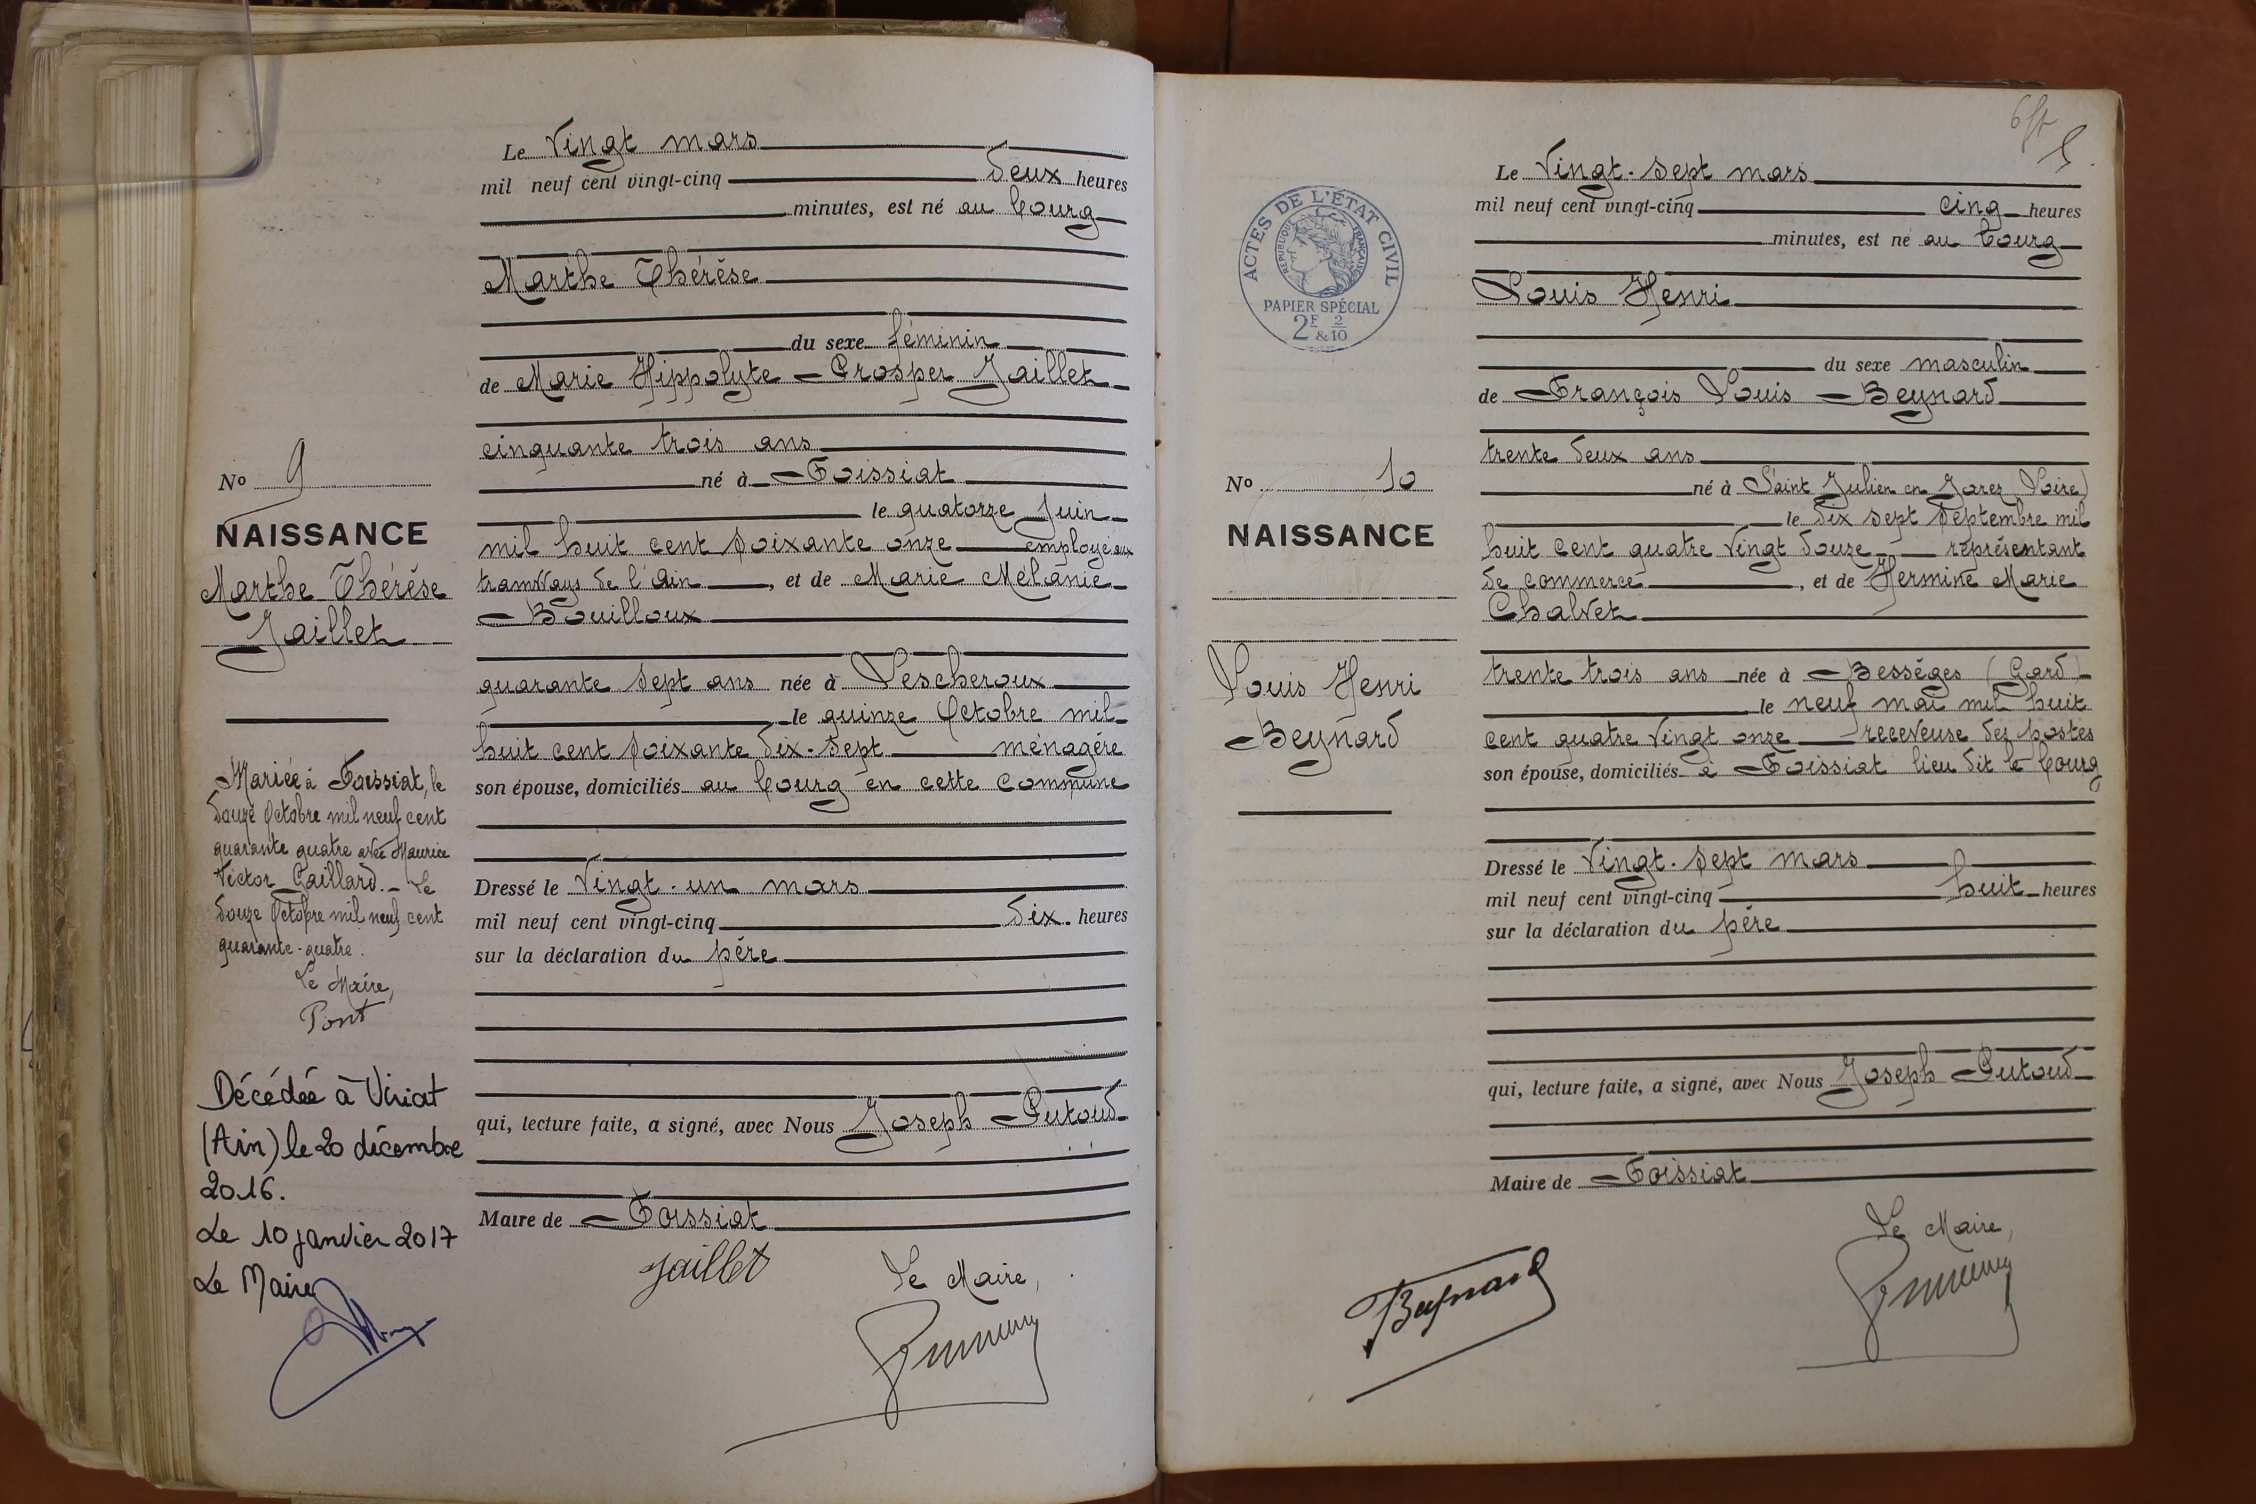 Le Vingt mars
mil neuf cent vingt-cinq deux heures
minutes, est né au bourg
Marthe Thérèse
du sexe féminin
de Marie Hippolyte Prosper Jaillet
cinquante trois ans
né à Foissiat
le quatorze Juin
mil huit cent soixante onze employé aux
tramways de l'Ain, et de Marie Mélanie
Bouilloux
quarante sept ans née à Lescheroux
le quinze Octobre mil
huit cent soixante dix-sept ménagère
son épouse, domiciliés au bourg en cette commune
Dressé le Vingt-un mars
mil neuf cent vingt-cinq dix heures
sur la déclaration du père
qui, lecture faite, a signé, avec Nous Joseph Putoud
Maire de Foissiat
Jaillet
Le Maire,
No 9
NAISSANCE
Marthe Thérèse
Jaillet
Mariée à Foissiat, le
douze Octobre mil neuf cent
quarante quatre avec Maurice
Victor Paillard. - Le
douze Octobre mil neuf cent
quarante-quatre.
Le Maire,
Pont
Décédée à Viriat
(Ain) le 20 décembre
2016.
Le 10 janvier 2017
Le Maire
Le Vingt-sept mars
mil neuf cent vingt-cinq cinq heures
minutes, est né au bourg
Louis Henri
du sexe masculin
de François Louis Beynard
trente deux ans
né à Saint Julien en Jarez (Loire)
le dix sept septembre mil
huit cent quatre vingt douze représentant
de commerce, et de Hermine Marie
Chalvet
trente trois ans née à Bessèges (Gard)
le neuf mai mil huit
cent quatre vingt onze receveuse des postes
son épouse, domiciliés à Foissiat lieu dit le bourg
Dressé le Vingt-sept mars
mil neuf cent vingt-cinq huit heures
sur la déclaration du père
qui, lecture faite, a signé, avec Nous Joseph Putoud
Maire de Foissiat
Le Maire,
Beynard
ACTES DE L'ÉTAT CIVIL
RÉPUBLIQUE FRANÇAISE
PAPIER SPÉCIAL
2F & 2/10
No 10
NAISSANCE
Louis Henri
Beynard